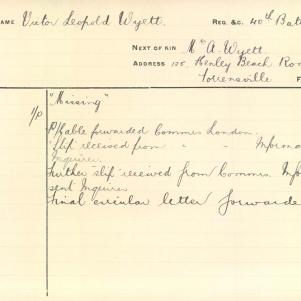 NAME Victor Leopold Wyett. REG. &C. 40th Batt
NEXT OF KIN Mrs A. Wyett
ADDRESS 125, Henley Beach Roa
Torrensville
"Missing"
P/Cable forwarded Commrs London.
Slip received from " " Informa
Inquiries
Further slip received from Commrs Info
sent Inquirer
Final circular letter forwarde